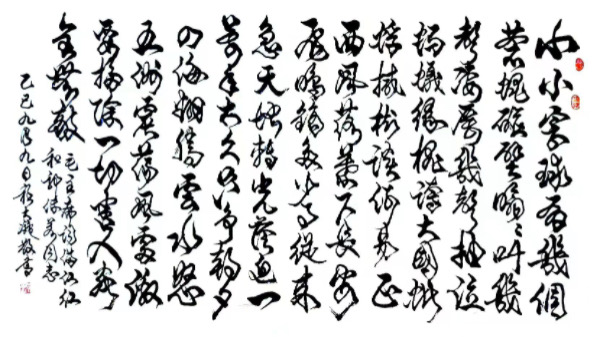 小小寰球有幾個
蒼蠅碰壁嗡嗡叫幾
聲凄厲幾聲抽泣
螞蟻緣槐誇大國蚍
蜉撼樹談何易正
西風落葉下長安
飛鳴鏑多少事從來
急天地轉光陰迫一
萬年太久只爭朝夕
四海翻騰雲水怒
五洲震蕩風雷激
要掃除一切害人蟲
全無敵
毛主席詞滿江紅
和郭沫若同志
乙巳九月九日書